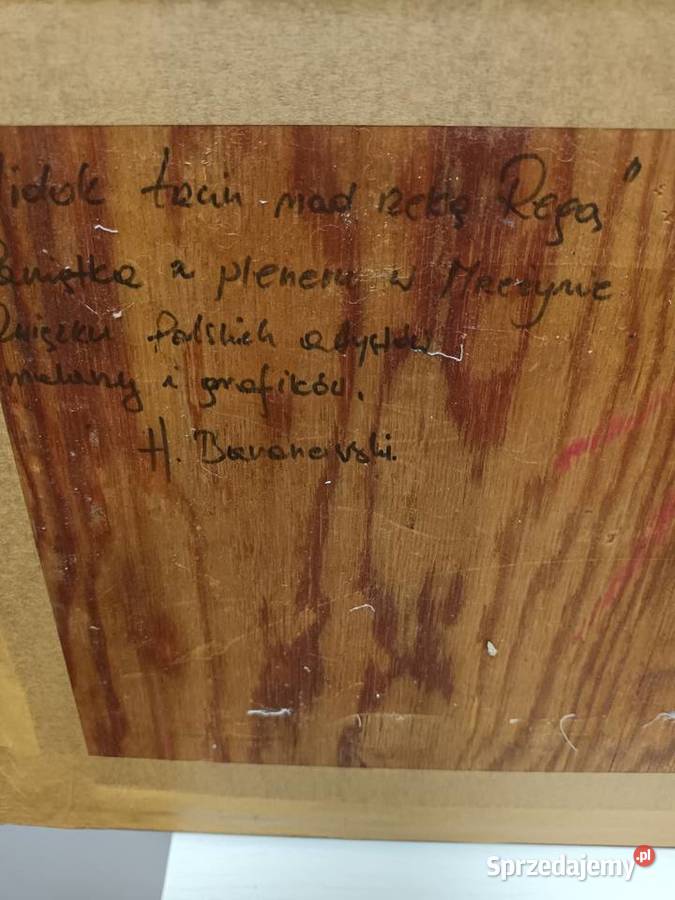 idok trcin nad rzeką Regą"
amiątka z pleneru w Mrzeżynie
wiązku Polskich artystów
malarzy i grafików.
H. Baranowski.
Sprzedajemy.pl